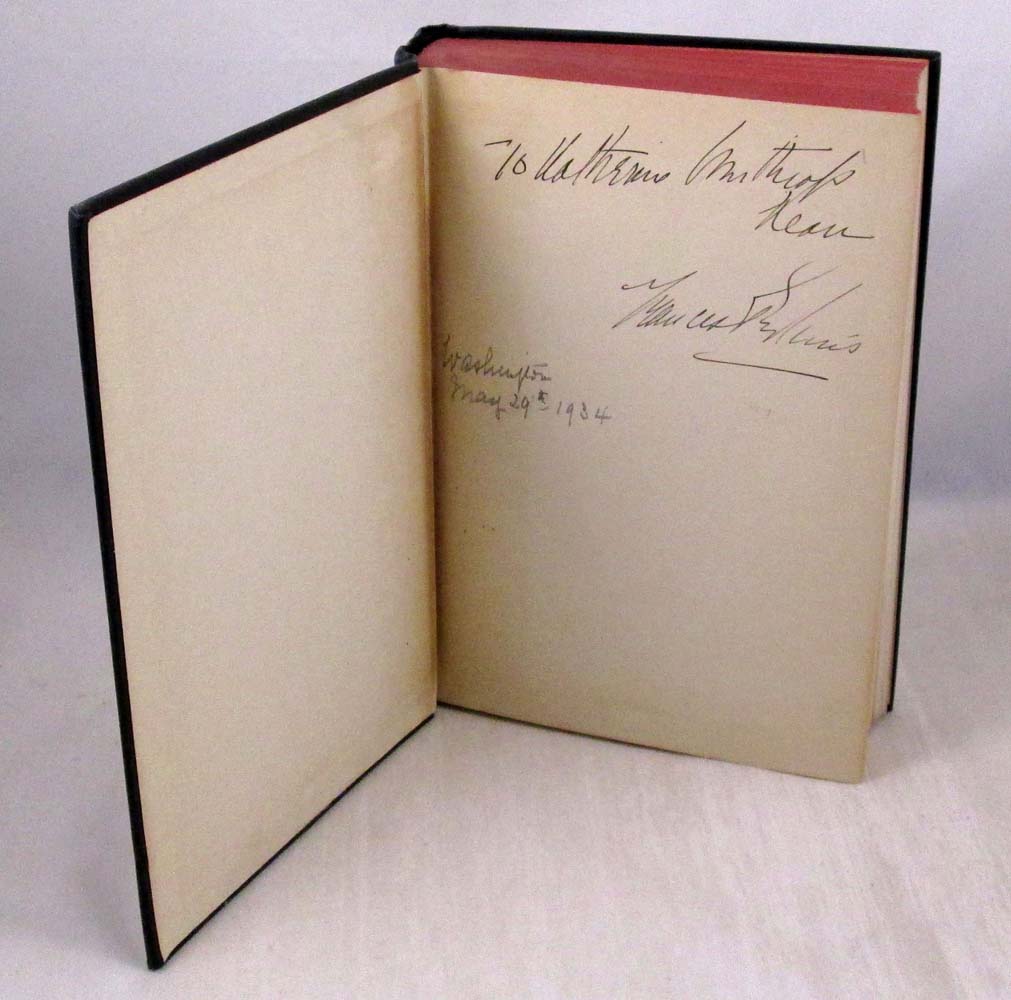 To Katherine Winthrop
Kean
Frances Perkins
Washington
May 29th 1934